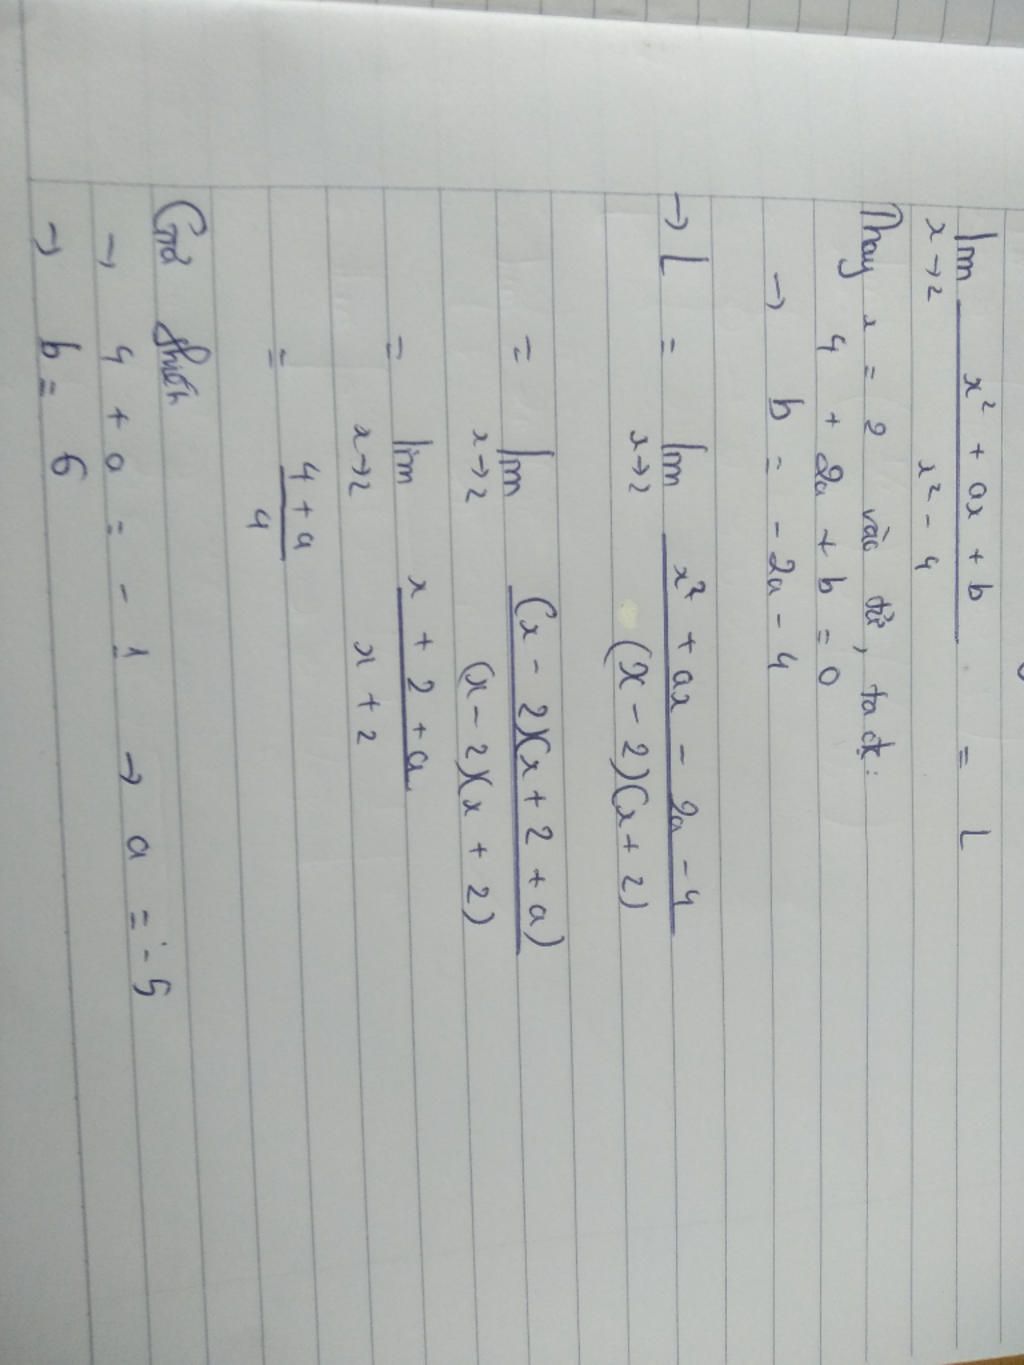 lim x² + ax + b = L
x→2 x² - 4
Thay x = 2 vào tử, ta đc:
4 + 2a + b = 0
→ b = - 2a - 4
→ L = lim x² + ax - 2a - 4
x→2 (x - 2)(x + 2)
= lim (x - 2)(x + 2 + a)
x→2 (x - 2)(x + 2)
= lim x + 2 + a
x→2 x + 2
= 4 + a
4
Giả thiết
→ 4 + a = - 1 → a = - 5
→ b = 6